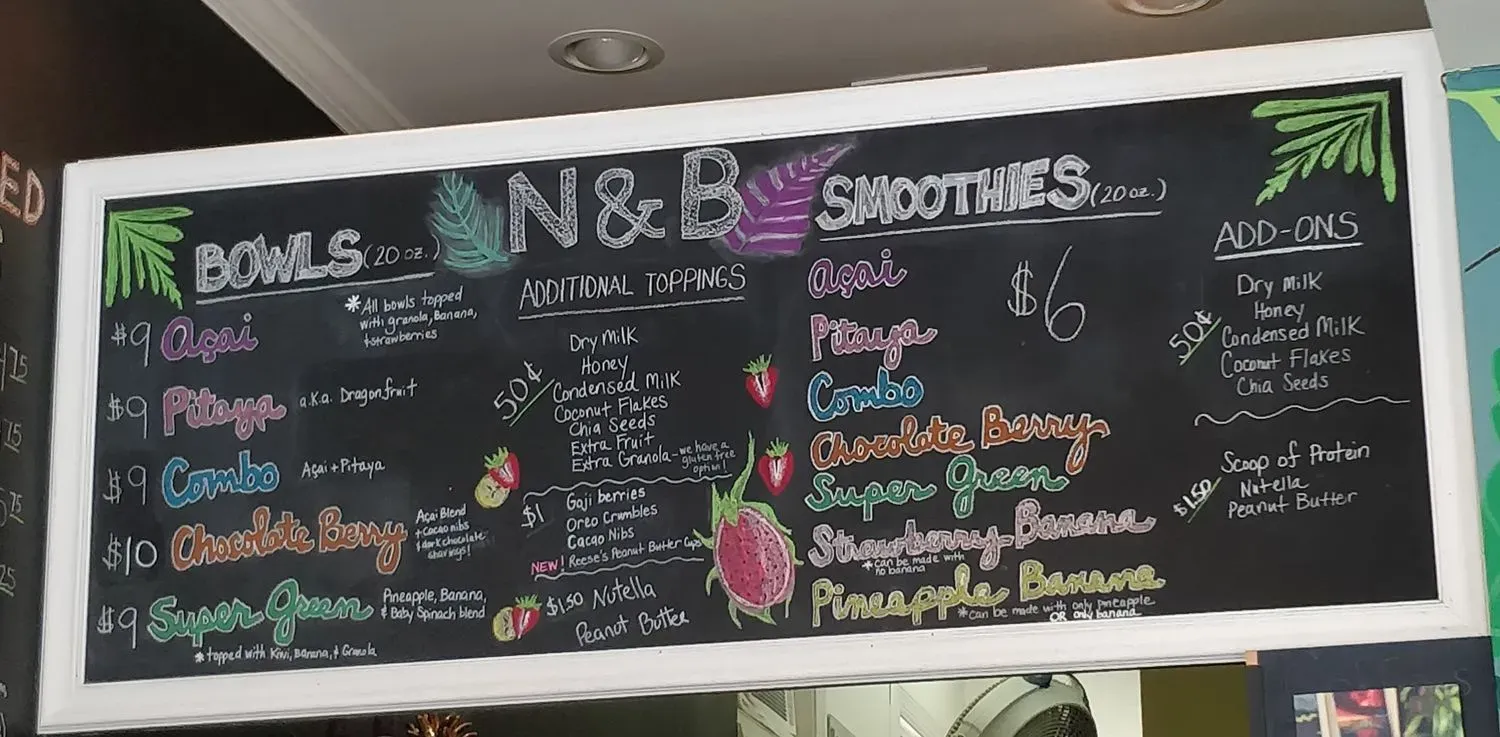 N & B
BOWLS (20 oz.)
*All bowls topped
with granola, Banana,
+ strawberries
$9 Açai
$9 Pitaya a.k.a. Dragonfruit
$9 Combo Açai + Pitaya
$10 Chocolate Berry
Açai Blend
+ Cacao nibs
& dark chocolate
shavings!
$9 Super Green
Pineapple, Banana,
& Baby Spinach blend
*topped with Kiwi, Banana, & Granola
ADDITIONAL TOPPINGS
50¢
Dry Milk
Honey
Condensed Milk
Coconut Flakes
Chia Seeds
Extra Fruit
Extra Granola - we have a
gluten free
option!
$1
Goji berries
Oreo Crumbles
Cacao Nibs
NEW! Reese's Peanut Butter Cups
$1.50 Nutella
Peanut Butter
SMOOTHIES (20 oz.)
$6
Açai
Pitaya
Combo
Chocolate Berry
Super Green
Strawberry Banana
*can be made with
no banana
Pineapple Banana
*can be made with only pineapple
OR only banana
ADD-ONS
50¢
Dry Milk
Honey
Condensed Milk
Coconut Flakes
Chia Seeds
$1.50
Scoop of Protein
Nutella
Peanut Butter
ED
75
15
75
25